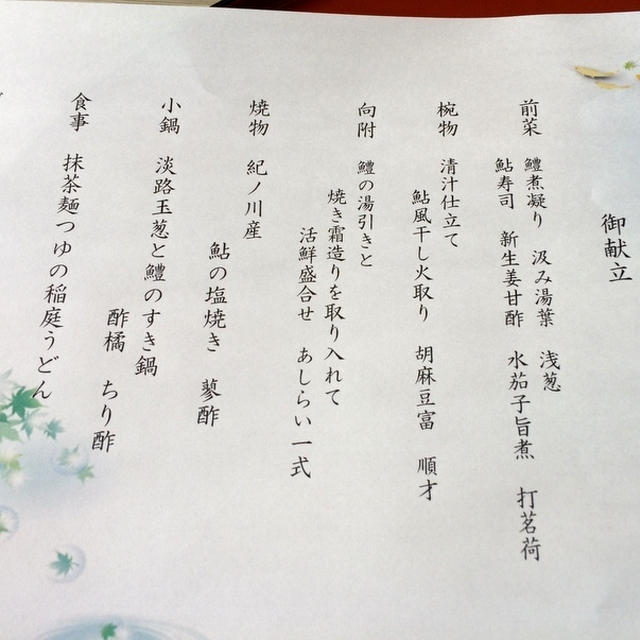 御献立
前菜 鱧煮凝り 汲み湯葉 浅葱
鮎寿司 新生姜甘酢 水茄子旨煮 打茗荷
椀物 清汁仕立て
鮎風干し火取り 胡麻豆富 順才
向附 鱧の湯引きと
焼き霜造りを取り入れて
活鮮盛合せ あしらい一式
焼物 紀ノ川産
鮎の塩焼き 蓼酢
小鍋 淡路玉葱と鱧のすき鍋
酢橘 ちり酢
食事 抹茶麺つゆの稲庭うどん